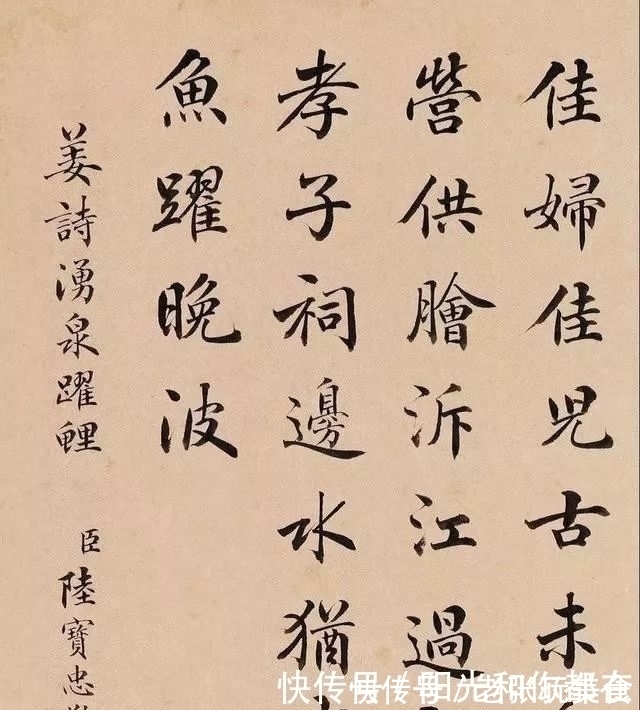 佳婦佳兒古未
營供膾泝江過
孝子祠邊水猶
魚躍晚波
姜詩湧泉躍鯉
臣陸寶忠
快传号